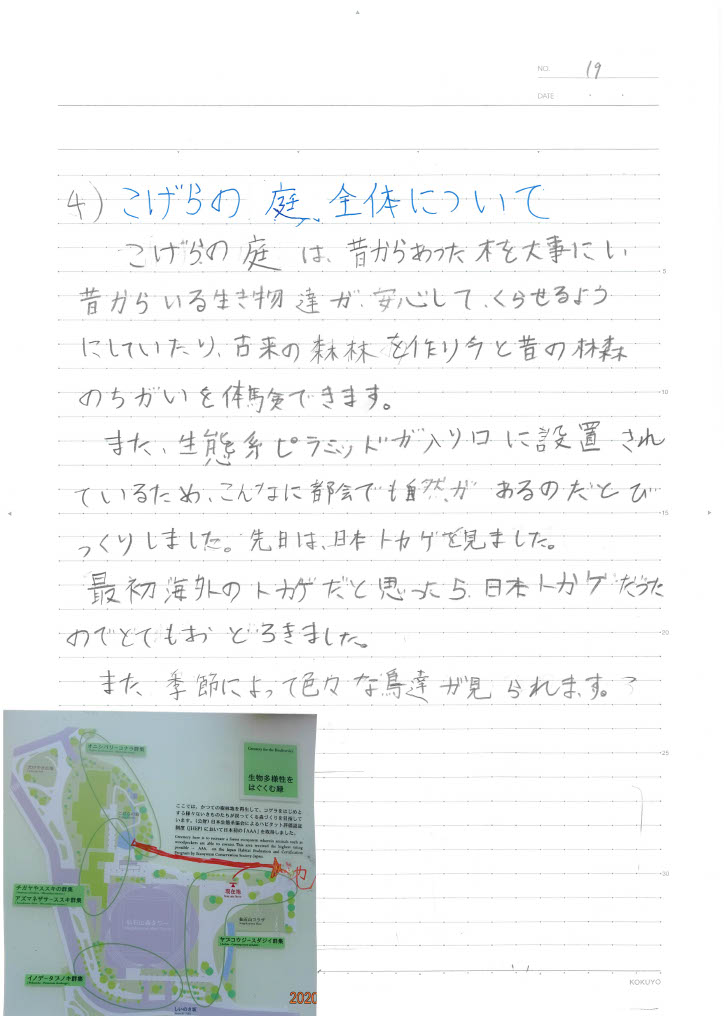 NO. 19
DATE
4) こげらの庭、全体について
こげらの庭は、昔からあった木を大事にい
昔からいる生き物達が、安心して、くらせるよう
にしていたり、古来の森林を作り今と昔の林森
のちがいを体験できます。
また、生態系ピラミッドが入り口に設置され
ているため、こんなに都会でも自然があるのだとび
っくりしました。先日は、日本トカゲを見ました。
最初海外のトカゲだと思ったら、日本トカゲだった
のでとてもおどろきました。
また、季節によって色々な鳥達が見られます。
5
10
15
20
25
30
オニシバリーコナラ群集
コゲラの庭
生物多様性を
はぐくむ緑
ここでは、かつての森林地を再生して、コゲラをはじめと
する様々ないきものたちが戻ってくる森づくりを目指して
います。(公財)日本生態系協会によるハビタット評価認証
制度(JHEP)において日本初の「AAA」を取得しました。
チガヤーススキの群集
アズマネザサーススキ群集
現在地
仙石山テラス
仙石山森タワー
ヤブコウジースダジイ群集
イノデータブノキ群集
しいのき坂
2020
KOKUYO